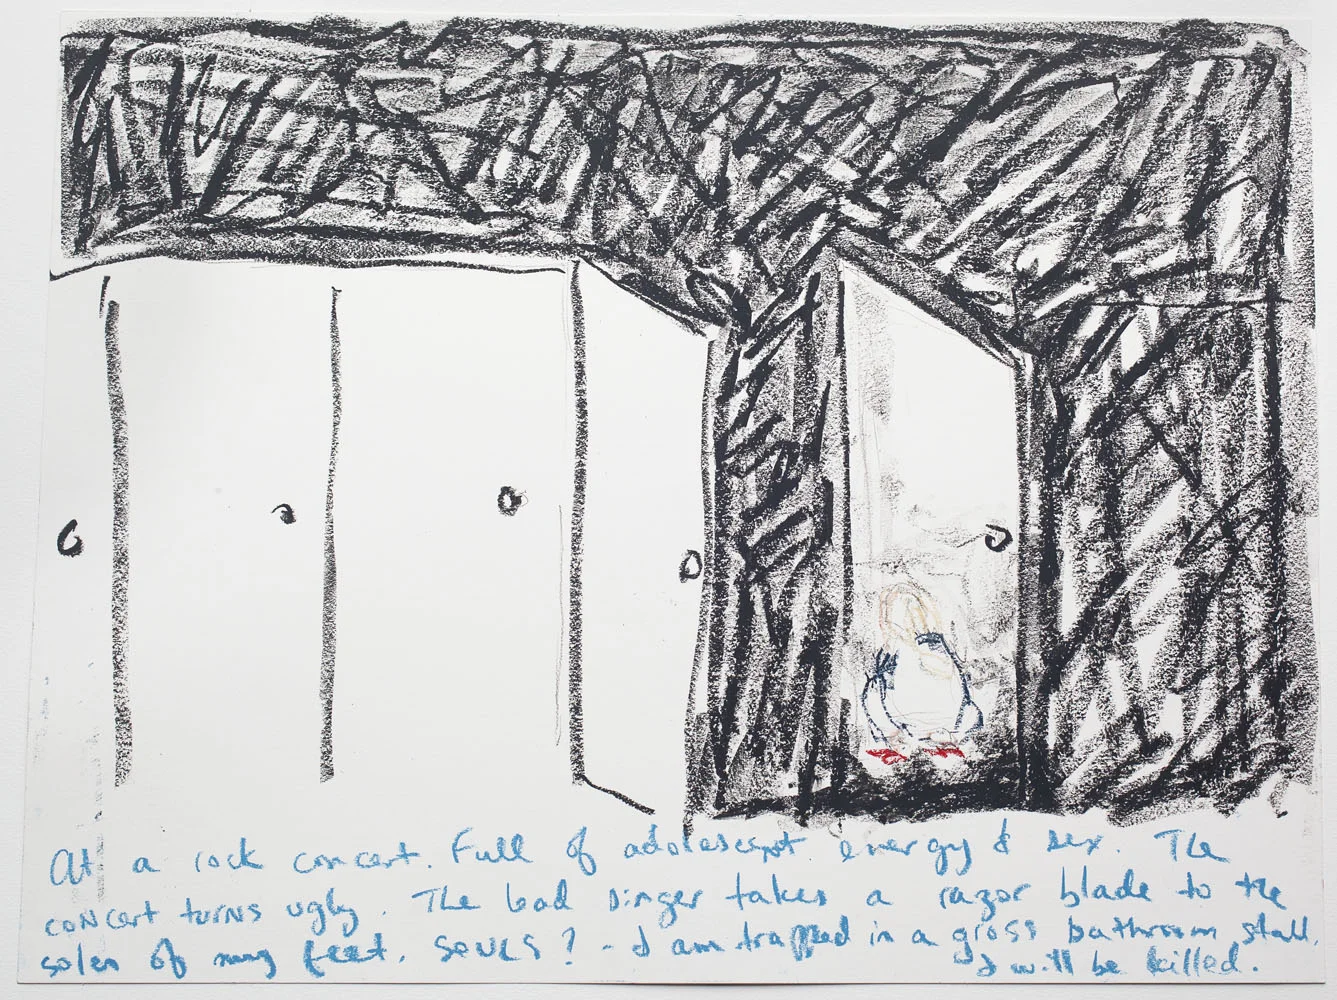 At a rock concert. Full of adolescent energy & sex. The
concert turns ugly. The lead singer takes a razor blade to the
soles of my feet. souls? - I am trapped in a gross bathroom stall.
I will be killed.